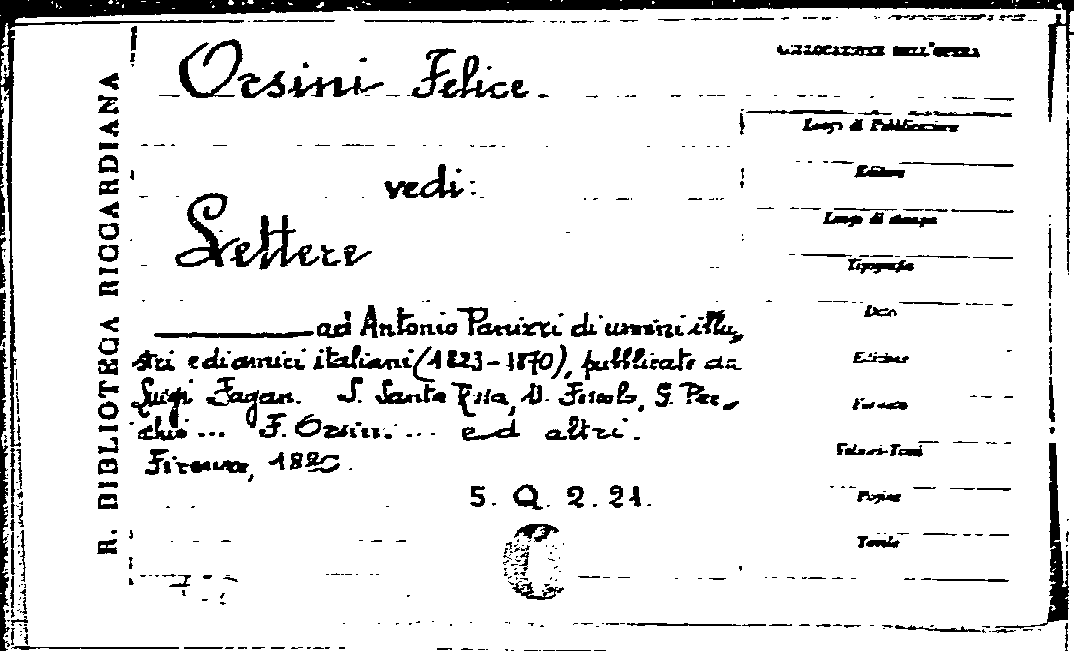 R. BIBLIOTECA RICCARDIANA
Orsini Felice.
vedi:
Lettere
ad Antonio Panizzi di uomini illu-
stri e di amici italiani (1823-1870), pubblicate da
Luigi Fagan. S. Santa Rosa, U. Foscolo, G. Pec-
chio... F. Orsini... ed altri.
Firenze, 1880.
5. Q. 2. 21.
COLLOCAZIONE DELL'OPERA
Luogo di Pubblicazione
Editore
Luogo di stampa
Tipografia
Data
Edizione
Formato
Volumi-Tomi
Pagine
Tavole